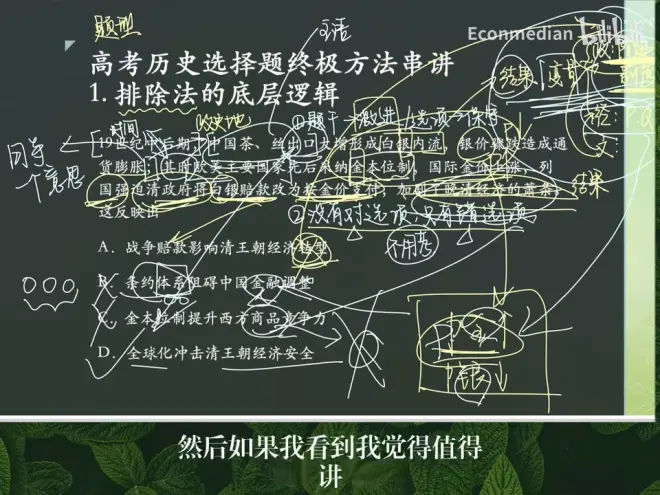 题型
主语
Econmedian
bilibili
高考历史选择题终极方法串讲
1. 排除法的底层逻辑
结果
时间
①题干→激进 选项→保守
19世纪中后期,中国茶、丝出口大增形成白银内流,银价骤跌造成通
货膨胀;其时欧美主要国家先后采纳金本位制,国际金价上涨,列
国强迫清政府将白银赔款改为按金价支付,加剧了晚清经济的萧条。
这反映出
个意思
结果
②没有对选项,只有错选项
不用想
A. 战争赔款影响清王朝经济转型
B. 条约体系阻碍中国金融调整
C. 金本位制提升西方商品竞争力
D. 全球化冲击清王朝经济安全
银
然后如果我看到我觉得值得
讲